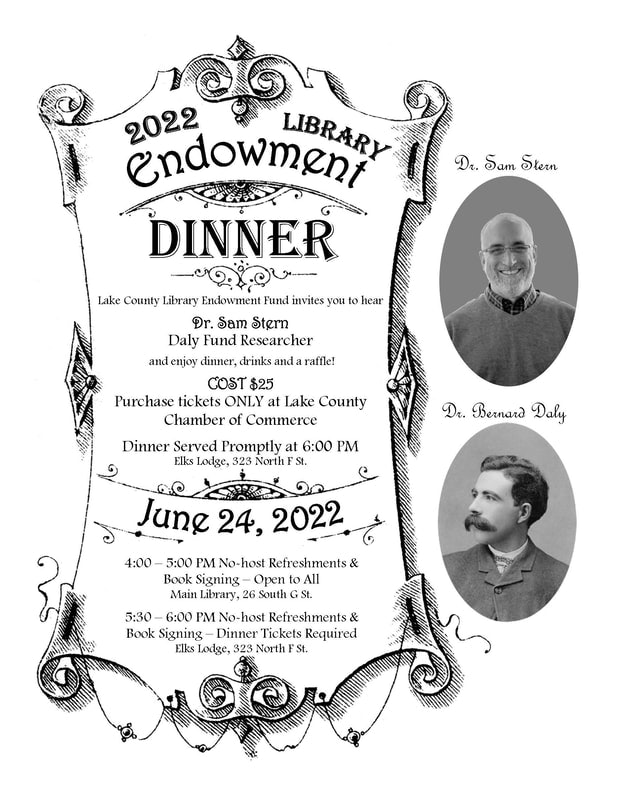 2022 LIBRARY
Endowment
DINNER
Lake County Library Endowment Fund invites you to hear
Dr. Sam Stern
Daly Fund Researcher
and enjoy dinner, drinks and a raffle!
COST $25
Purchase tickets ONLY at Lake County
Chamber of Commerce
Dinner Served Promptly at 6:00 PM
Elks Lodge, 323 North F St.
June 24, 2022
4:00 – 5:00 PM No-host Refreshments &
Book Signing – Open to All
Main Library, 26 South G St.
5:30 – 6:00 PM No-host Refreshments &
Book Signing – Dinner Tickets Required
Elks Lodge, 323 North F St.
Dr. Sam Stern
Dr. Bernard Daly